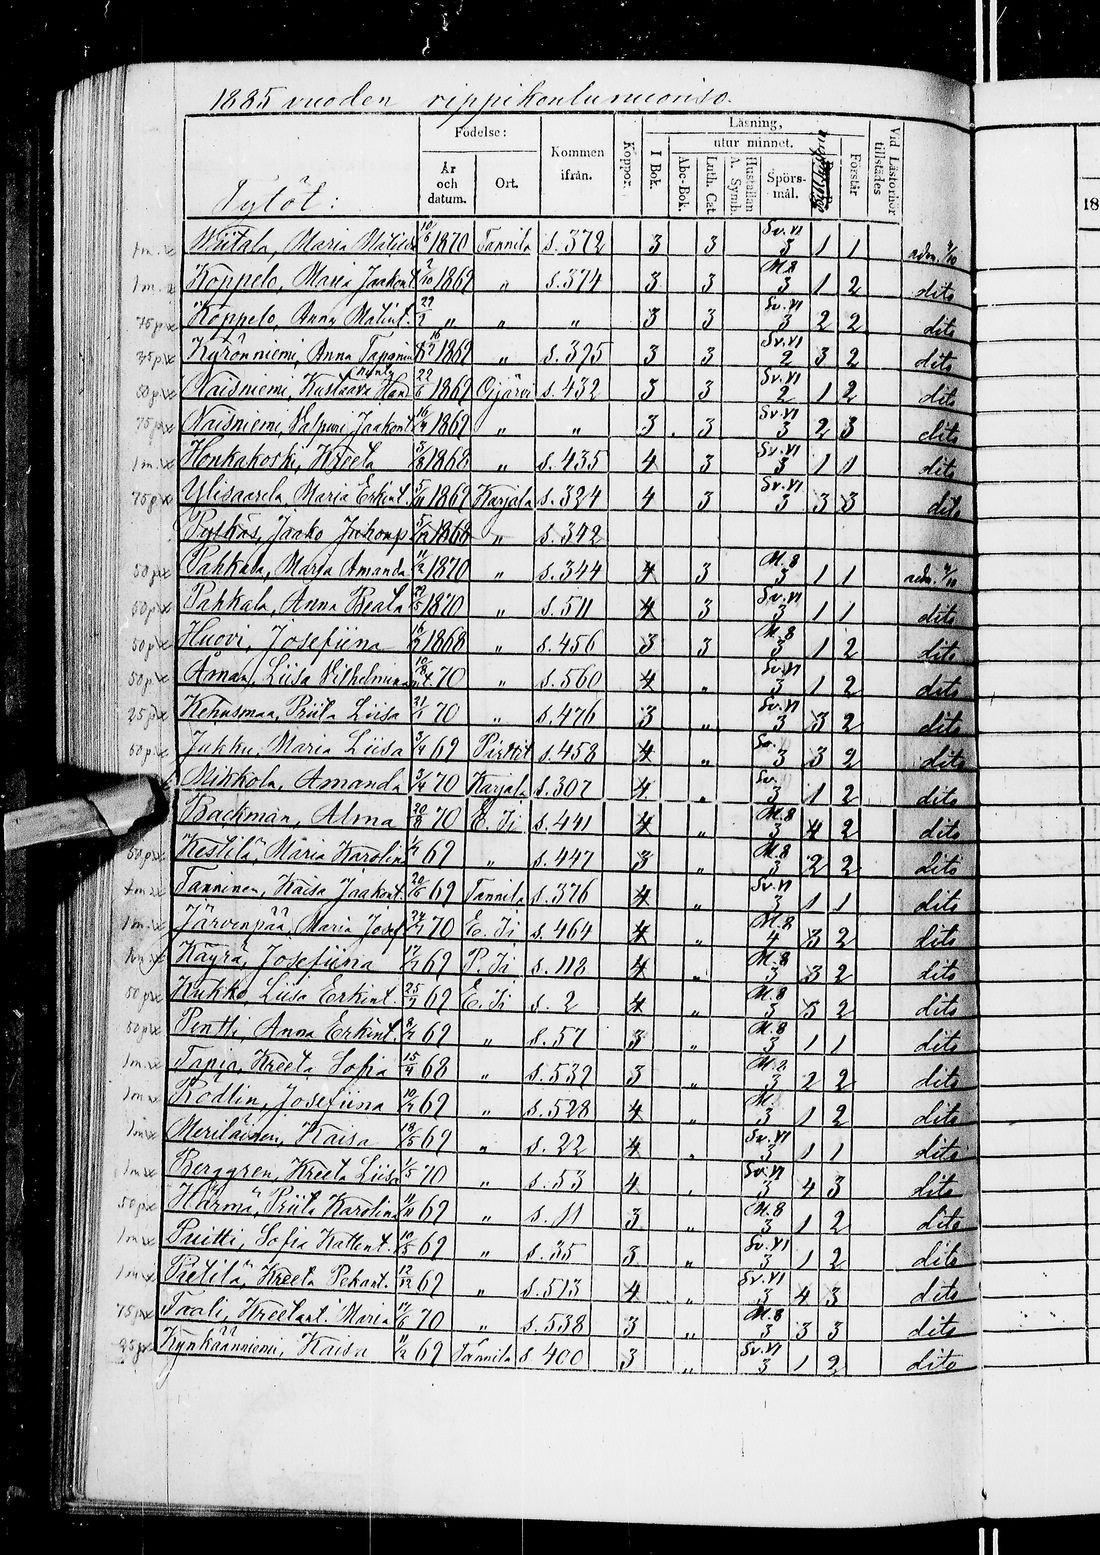 1885 vuoden rippikoulunuoriso.
Tytöt:
Födelse: År och datum. Ort. Kommen ifrån. Koppor. Läsning, I Bok. utur minnet. Abc-Bok. Luth. Cat. Hustaflan A. Symb. Spörsmål. Förstår Vid Läsförhör tillstädes
18
1 m. Wiitala, Maria Matilda 10/6 1870 Tannila s. 372 3 3 Sv. VI 3 1 1 adm. 4/10
1 m. Koppelo, Maria Jaakont. 2/10 1869 „ s. 374 3 3 M. 8 3 1 2 dito
75 p. Koppelo, Anna Matint. 29/2 „ „ „ 3 3 Sv. VI 3 2 2 dito
35 p. Kyrönniemi, Anna Tapanin 1869 „ s. 375 3 3 Sv. VI 2 3 2 dito
60 p. Naisniemi, Kustaava 22/6 1869 Ojärvi s. 432 3 3 Sv. VI 2 1 2 dito
75 p. Naisniemi, Valpuri Jaakont. 16/4 1869 „ „ 3 3 Sv. VI 3 2 3 dito
1 m. Honkakoski, Kreeta 3/8 1868 „ s. 435 4 3 Sv. VI 3 1 1 dito
75 p. Ylisaarela Maria Erkint. 5/11 1869 Karjala s. 324 4 3 Sv. VI 3 3 3 dito
Jaako 5/12 1868 „ s. 342
50 p. Pahkala, Maria Amanda 11/2 1870 „ s. 344 4 3 M. 8 3 1 1 adm. 4/10
50 p. Pahkala, Anna Beata 21/5 1870 „ s. 511 4 3 Sv. VI 3 1 1 dito
50 p. Huovi, Josefiina 1868 „ s. 456 3 3 M. 8 3 1 2 dito
50 p. Åman, Liisa Vilhelmina 70 „ s. 560 4 „ Sv. VI 3 1 2 dito
25 p. Kehusmaa, Priita Liisa 21/1 70 „ s. 476 3 „ Sv. VI 3 3 2 dito
50 p. Jukku, Maria Liisa 3/4 69 Pirttit s. 458 4 „ Sv. 3 3 2 dito
Mikkola, Amanda 3/4 70 Karjala s. 307 4 „ Sv. 3 1 2 dito
Backman, Alma 20/8 70 E. Ii s. 441 4 „ M. 8 3 4 2 dito
50 p. Kestilä, Maria Karolin 69 „ s. 447 3 „ M. 8 3 2 2 dito
1 m. Tanninen, Kaisa Jaakont. 20/6 69 Tannila s. 376 4 „ Sv. VI 3 1 1 dito
1 m. Järvenpää, Maria Josef 70 E. Ii s. 464 4 „ M. 8 4 3 2 dito
1 m. Käyrä, Josefiina 69 P. Ii s. 118 4 „ M. 8 3 3 2 dito
50 p. Kukko, Liisa Erkint. 25/2 69 E. Ii s. 2 4 „ M. 8 3 3 2 dito
50 p. Pentti, Anna Erkint. 69 „ s. 57 3 „ M. 8 3 1 1 dito
1 m. Tapio, Kreeta Sofia 15/4 68 „ s. 532 3 „ M. 8 3 2 2 dito
1 m. Rodlin, Josefiina 69 „ s. 528 4 „ M. 3 1 2 dito
1 m. Meriläinen, Kaisa 18/5 69 „ s. 22 4 „ Sv. VI 3 1 1 dito
1 m. Berggren, Kreeta Liisa 1/5 70 „ s. 53 4 „ Sv. VI 3 4 3 dito
50 p. Härmä, Priita Karolina 69 „ s. 11 3 „ M. 8 3 1 2 dito
1 m. Priitti, Sofia 10/5 69 „ s. 35 3 „ Sv. VI 3 1 2 dito
1 m. Pietilä, Kreeta Pekant. 12/12 69 „ s. 513 4 „ Sv. VI 3 4 3 dito
75 p. Taali, Kreetant. Maria 70 „ s. 538 3 „ M. 8 3 3 3 dito
25 p. Kynkäänniemi, Kaisa 11/2 69 Tannila s. 400 3 „ Sv. VI 3 1 2 dito